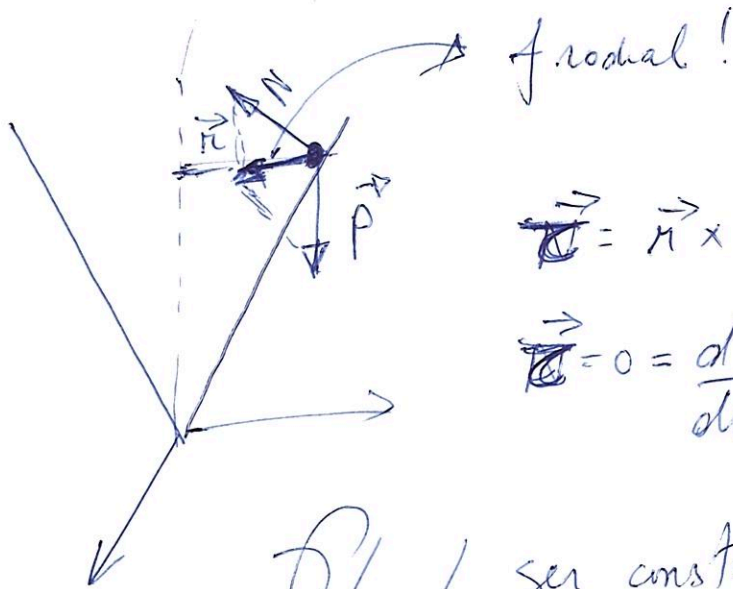 f. radial !
N
r⃗
P⃗
= r⃗ ×
= 0 = d
d
ser const